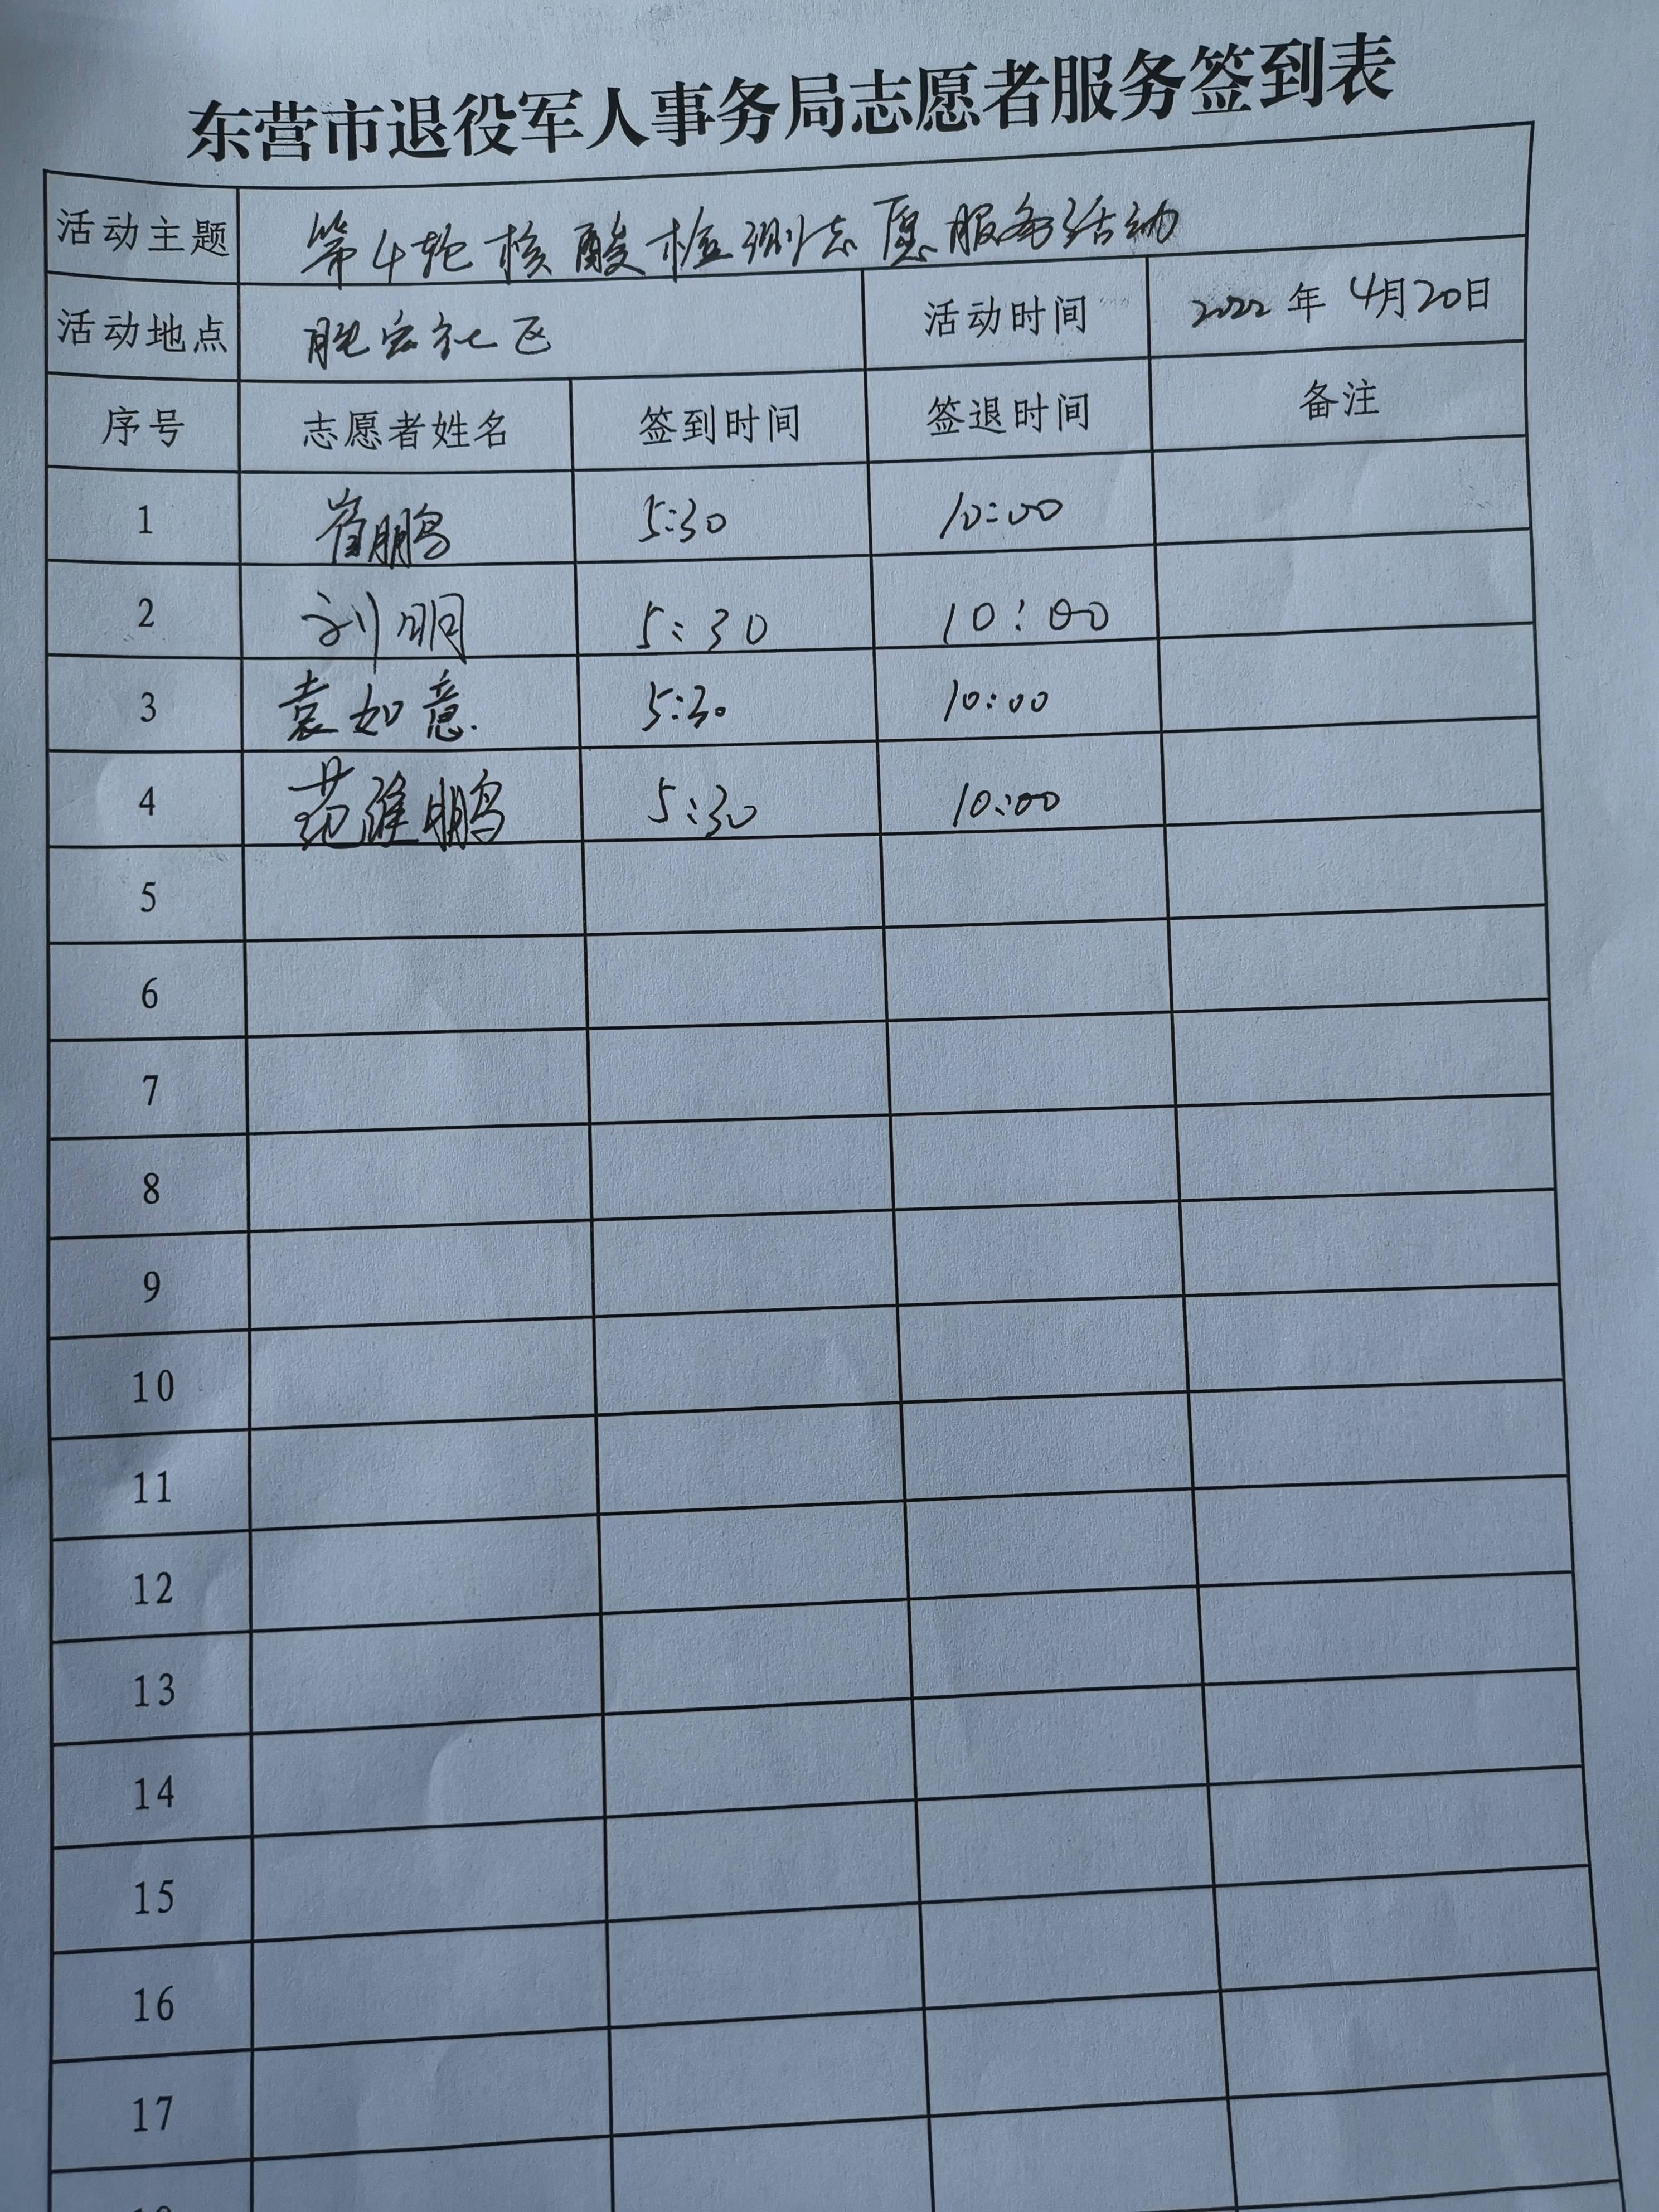 东营市退役军人事务局志愿者服务签到表
活动主题 第4轮核酸检测志愿服务活动
活动地点 胜宏社区 活动时间 2022年 4月20日
序号 志愿者姓名 签到时间 签退时间 备注
1 崔鹏 5:30 10:00
2 刘明 5:30 10:00
3 袁如意 5:30 10:00
4 范维鹏 5:30 10:00
5
6
7
8
9
10
11
12
13
14
15
16
17